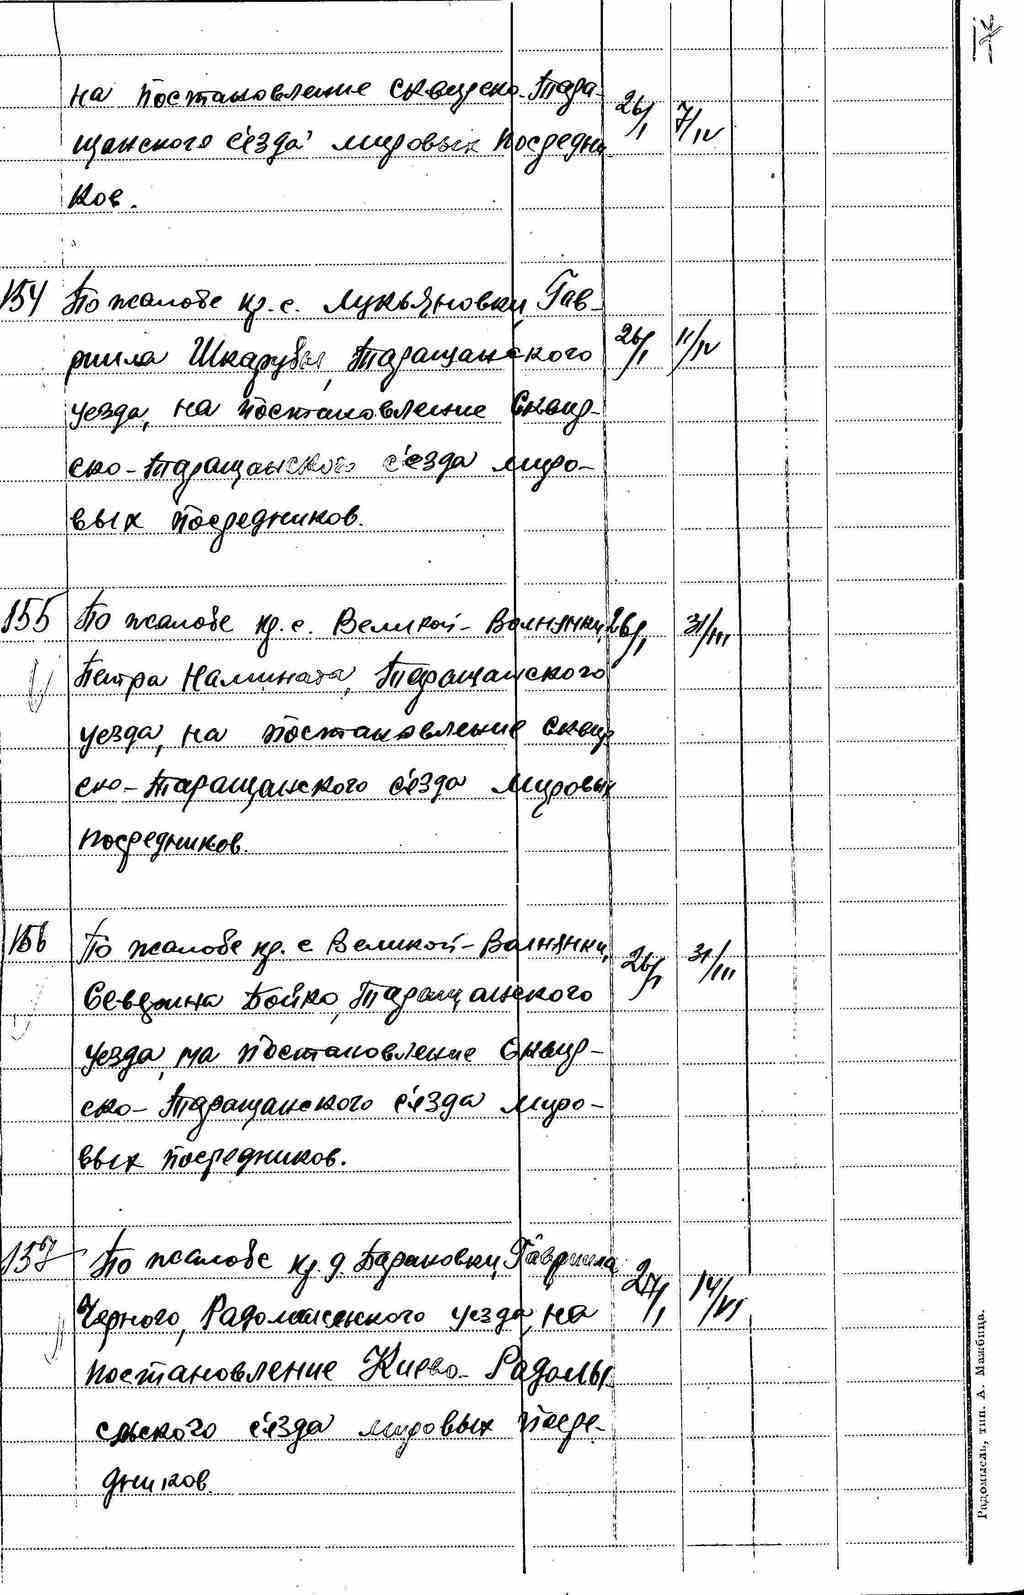 17
на постановление Сквирско-Тара-
щанского с'езда мировых посредни-
ков. 26/I 7/IV
154 По жалобе кр. с. Лукьяновки, Гав-
риила Шкарубы, Таращанского 26/I 11/IV
уезда, на постановление Сквир-
ско-Таращанского с'езда миро-
вых посредников.
155 По жалобе кр. с. Великой-Волнянки, 26/I 31/III
Петра Таращанского
уезда, на постановление Сквир
ско-Таращанского с'езда мировых
посредников.
156 По жалобе кр. с Великой-Волнянки, 26/I 31/III
Бойко, Таращанского
уезда, на постановление Сквир-
ско-Таращанского с'езда миро-
вых посредников.
157 По жалобе кр. д. Барановки, Гавриила 27/I 14/VI
Черного, Радомысльского уезда, на
постановление Киево-Радомы-
сльского с'езда мировых посре-
дников.
Радомысль, тип. А. Мажбица.